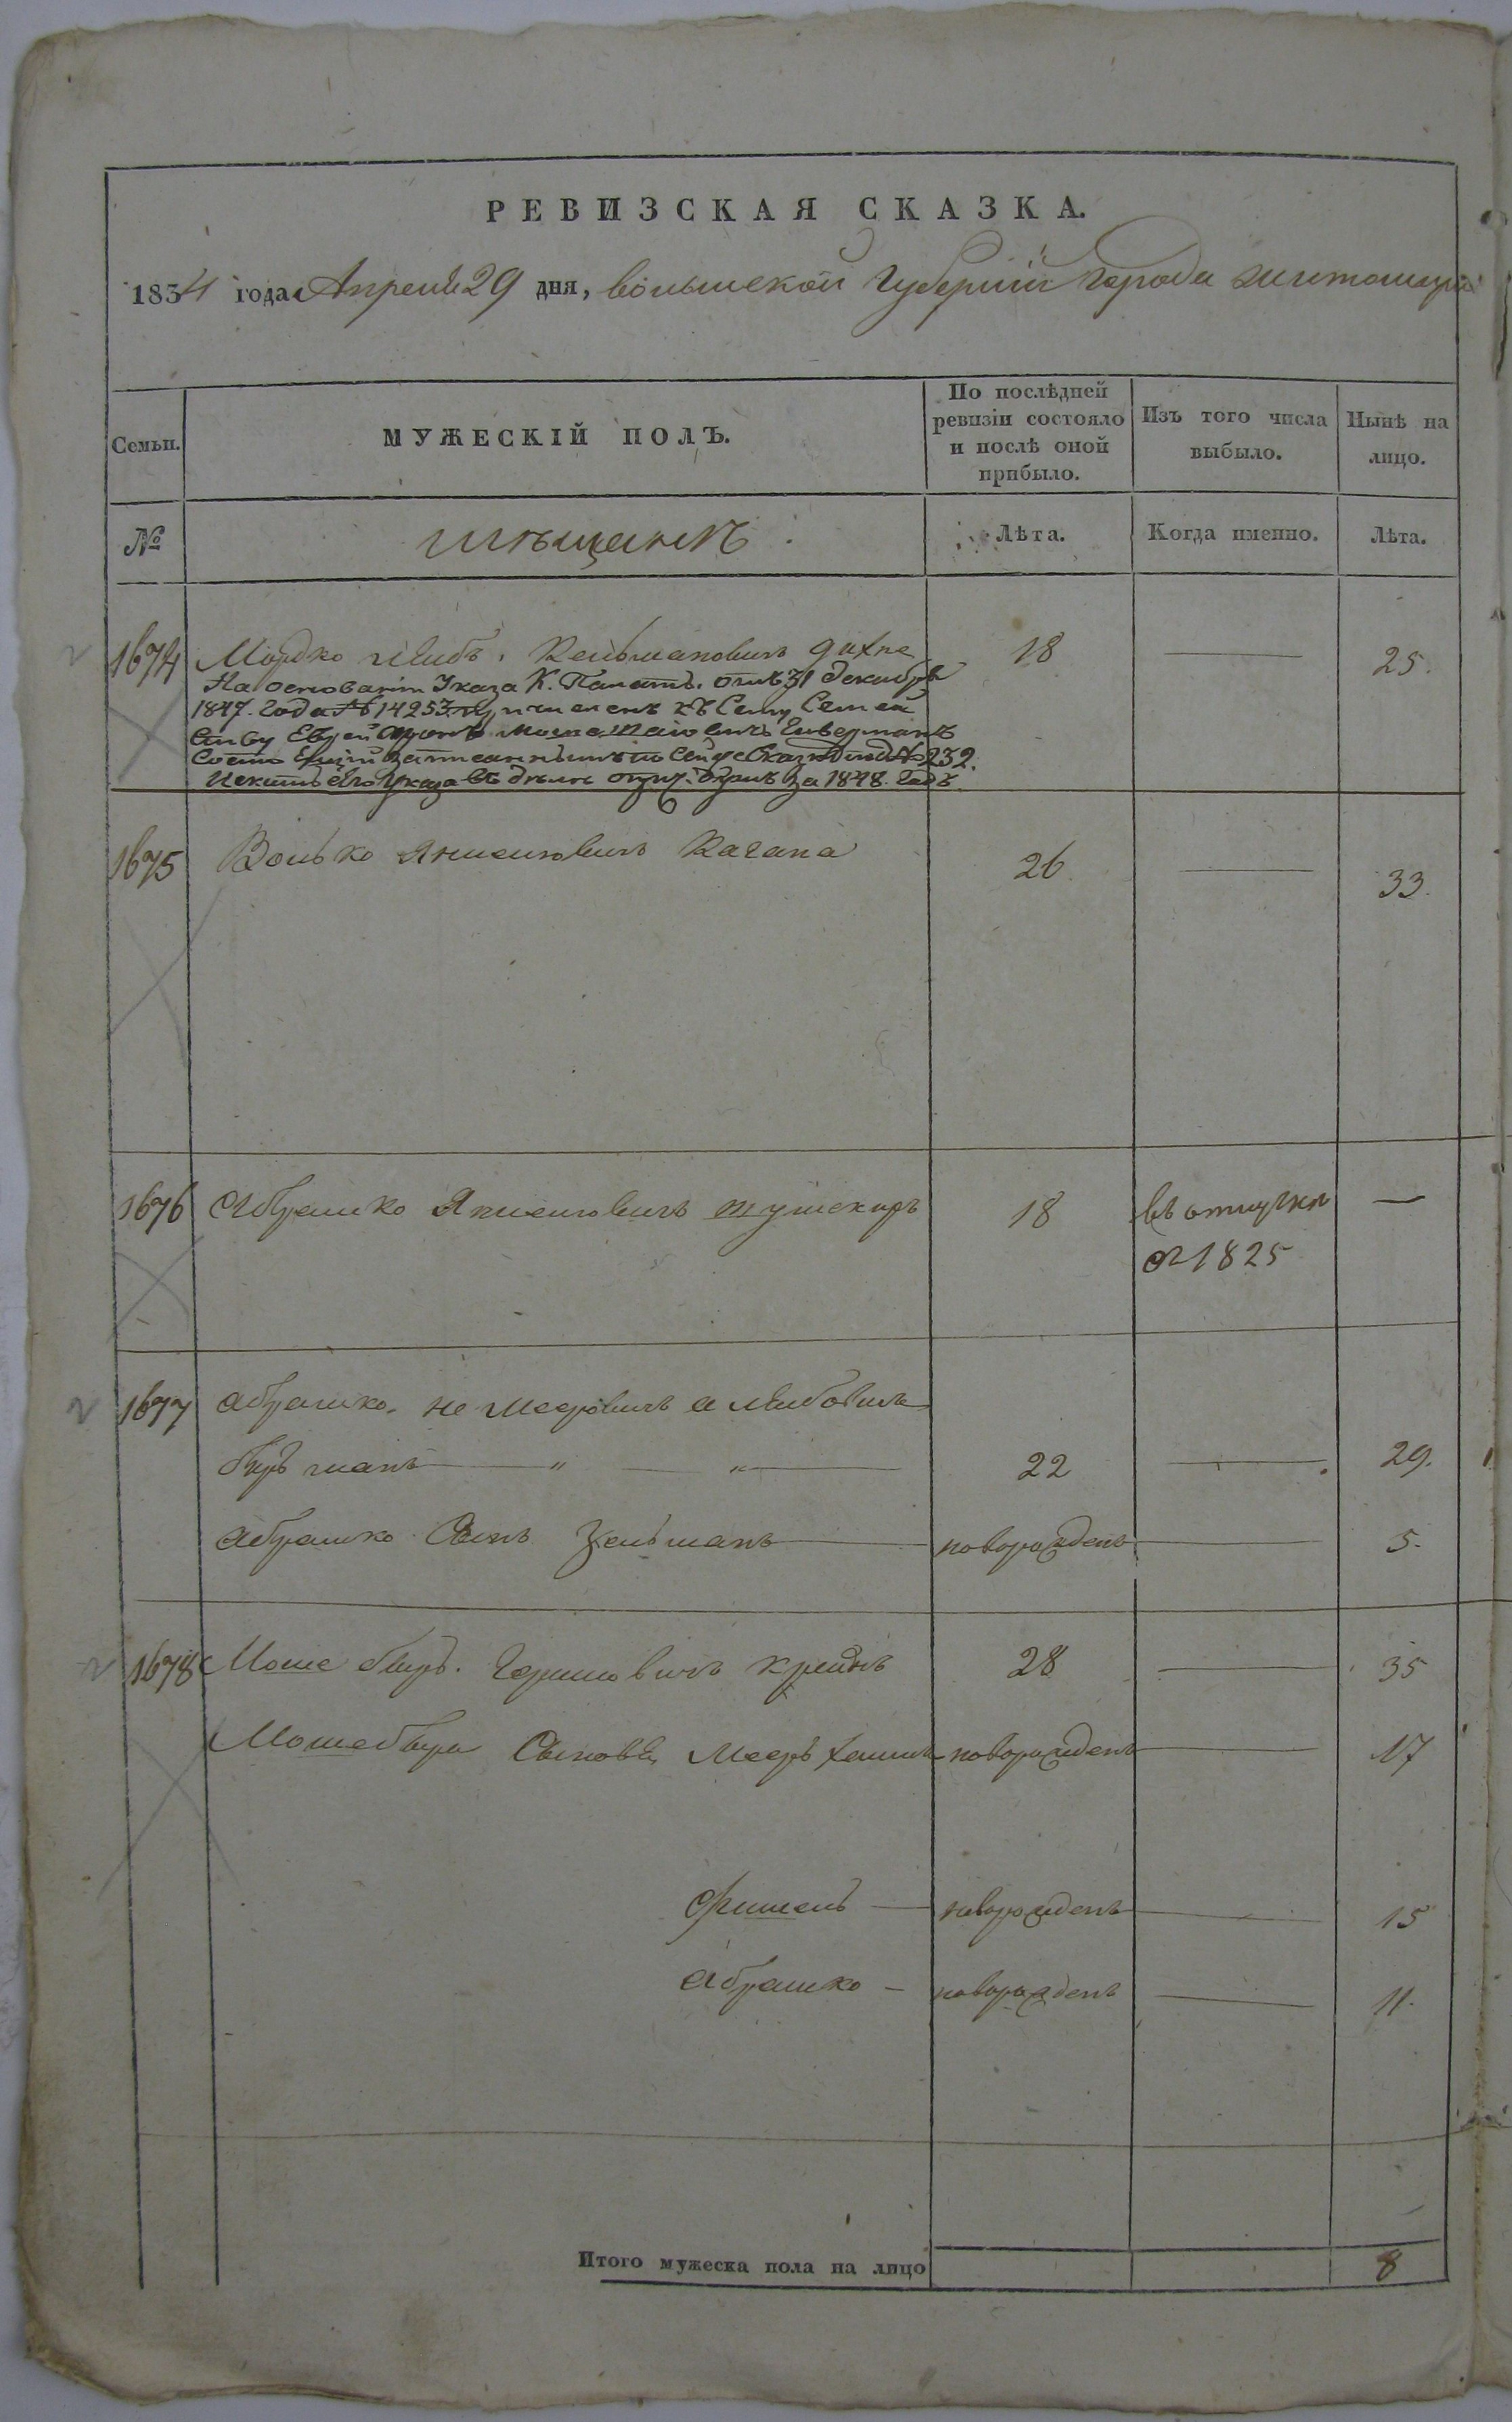 РЕВИЗСКАЯ СКАЗКА.
1834 года Апреля 29 дня, волынской Губернии города житомира
Семьи.
МУЖЕСКІЙ ПОЛЪ.
По послѣдней ревизіи состояло и послѣ оной прибыло.
Изъ того числа выбыло.
Нынѣ на лицо.
№
мѣщанъ
Лѣта.
Когда именно.
Лѣта.
1674 Мордко Лейбъ. Кельмановичъ 18 — 25.
На основаніи Указа К. Палаты. отъ 31 декабря
1847. Года № 14253. причисленъ къ Сему Семей
ству Еврей Мошко
записаннымъ по сей же Сказке подъ № 232.
Указа въ дѣлѣ за 1848. Годъ.
1675 Волько Янкелювичъ Кагана 26. — 33.
1676 Абрашко Янкелювичъ 18 въ отлучки —
съ 1825
1677 Абрашко. не Меэровичъ а Лейбовичъ
" " 22 — 29.
Абрашко Сынъ Зельманъ новорожденъ — 5.
1678 Моше беръ. Гершовичъ 28 — 35
Мошебера Сыновя, Меэръ хаимъ новорожденъ — 17
Фишель — новорожденъ — 15
Абрашко — новорожденъ — 11.
Итого мужеска пола на лицо 8